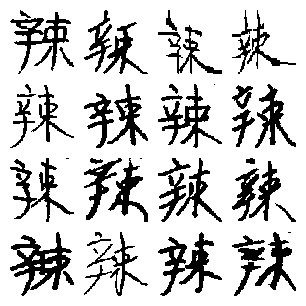 辣辣辣辣
辣辣辣辣
辣辣辣辣
辣辣辣辣